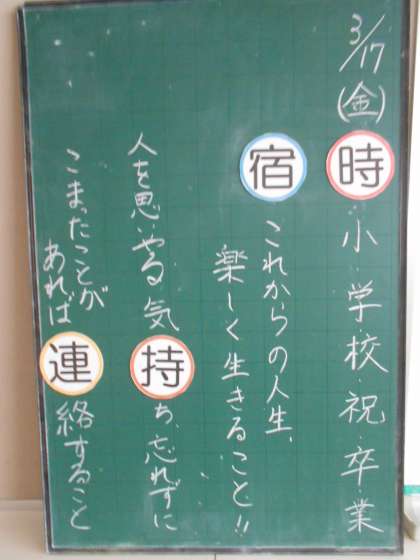 3/17(金)
時 小・学・校・祝・卒・業
宿 これからの人生、
楽しく生きること!!
人を思いやる気持ち、忘れずに
こまったことが
あれば連絡すること